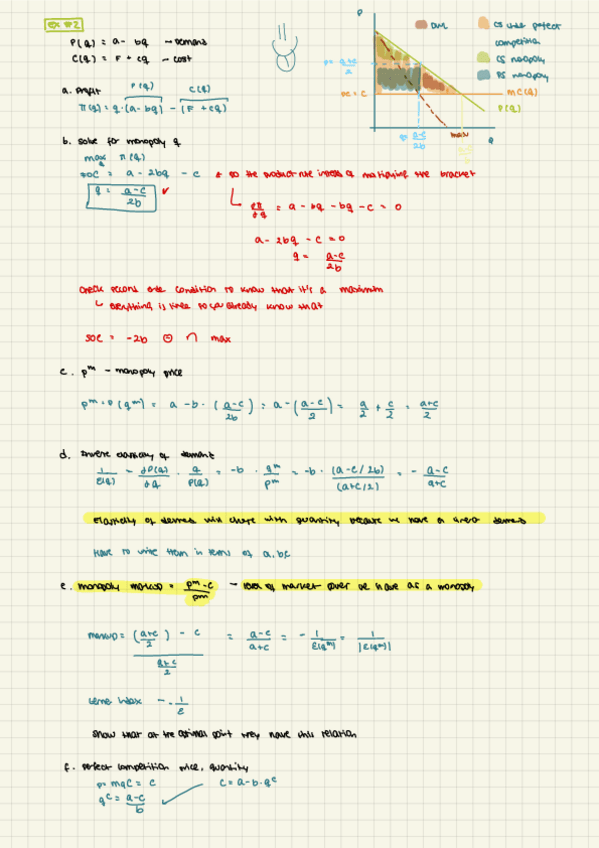 ex #2
P(q) = a - bq → Demand
C(q) = F + cq → cost
a. Profit
P(q) C(q)
π(q) = q · (a - bq) - (F + cq)
b. solve for monopoly q
max π(q)
q
FOC = a - 2bq - c
* do the product rule instead of multiplying the bracket
q = a-c / 2b ✓
∂π/∂q = a - bq - bq - c = 0
a - 2bq - c = 0
q = a-c / 2b
check second order condition to know that it's a maximum
↳ everything is linear so you already know that
SOC = -2b ⊖ ∩ max
c. pᵐ - monopoly price
pᵐ = P(qᵐ) = a - b · (a-c / 2b) = a - (a-c / 2) = a/2 + c/2 = a+c / 2
d. Inverse elasticity of demand
1/ε(q) = ∂P(q)/∂q · q/P(q) = -b · qᵐ/pᵐ = -b · (a-c/2b) / (a+c/2) = - a-c / a+c
Elasticity of demand will change with quantity because we have a linear demand
Have to write them in terms of a, b, c
e. monopoly markup = pᵐ-c / pᵐ → level of market power we have as a monopoly
markup = (a+c / 2) - c / a+c / 2 = a-c / a+c = - 1/ε(qᵐ) = 1/|ε(qᵐ)|
Lerner index - - 1/ε
Show that at the optimal point they have this relation
f. perfect competition price, quantity
p = mqc = c
c = a - b · qᶜ
qᶜ = a-c / b
P
DWL
CS under perfect competition
CS monopoly
PS monopoly
p = a+c / 2
pc = c
MC(q)
P(q)
a-c / 2b
Q